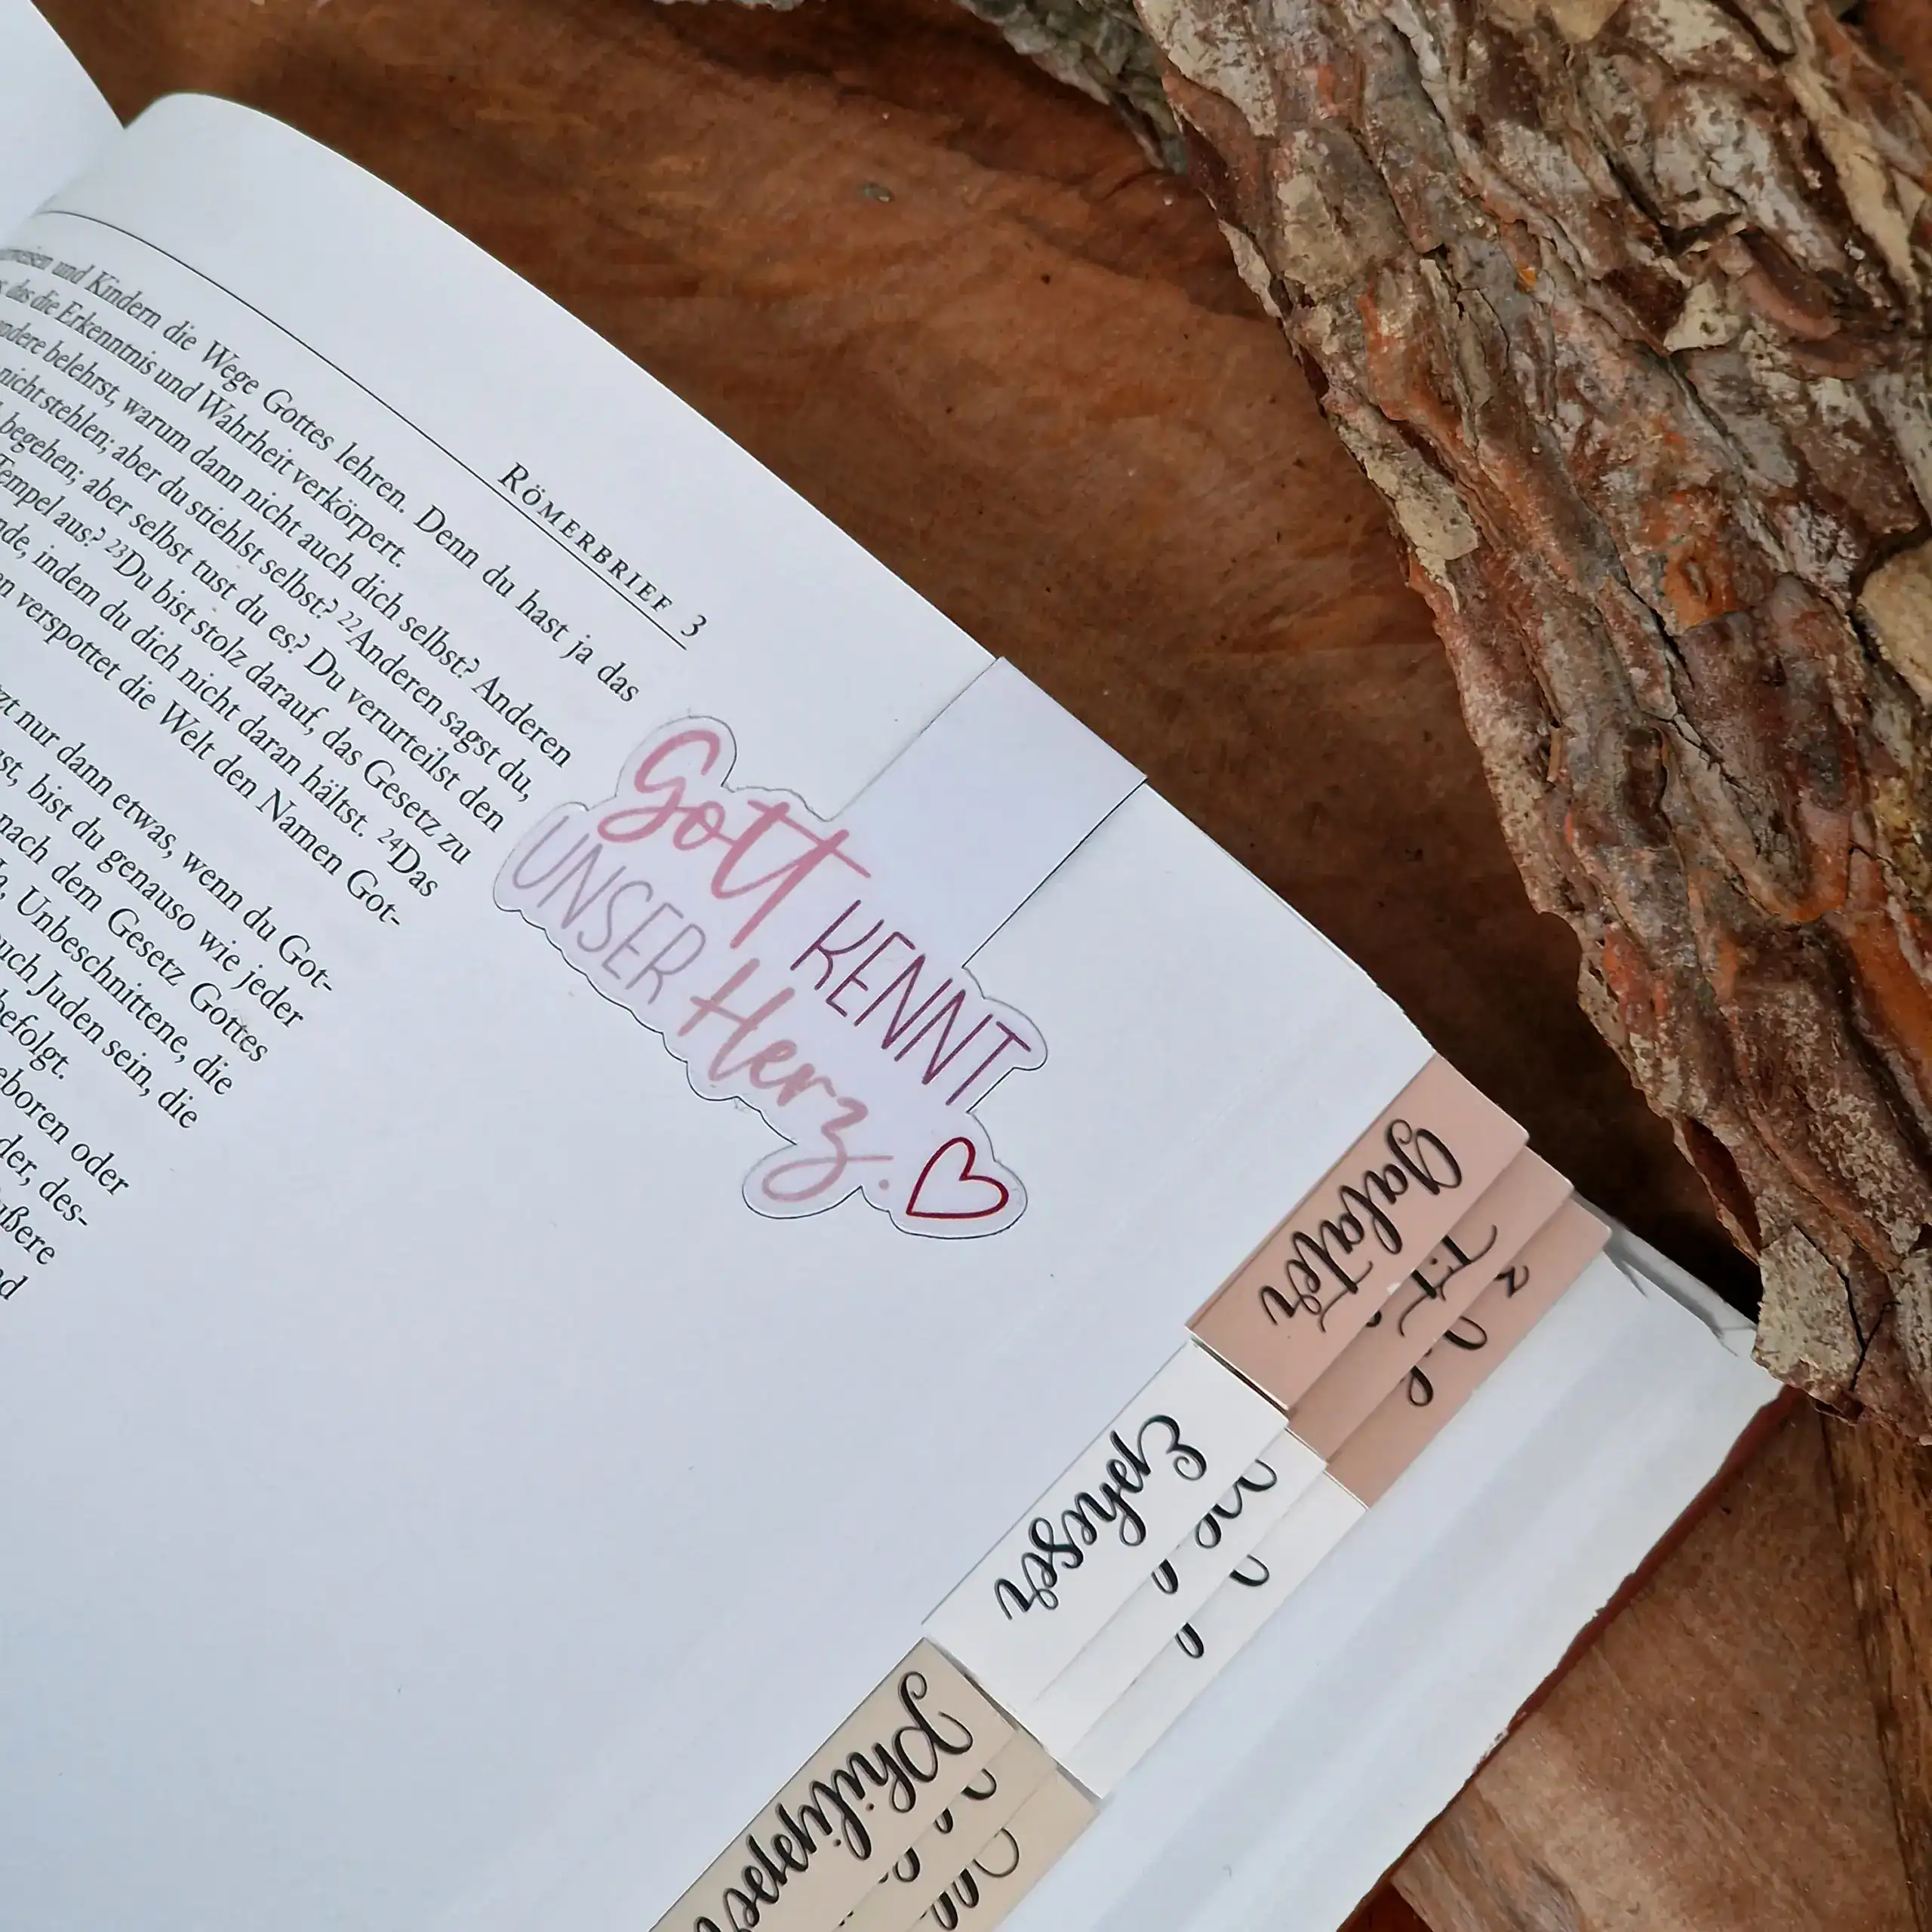 RÖMERBRIEF 3
und Kindern die Wege Gottes lehren. Denn du hast ja das
das die Erkenntnis und Wahrheit verkörpert.
belehrst, warum dann nicht auch dich selbst? Anderen
nicht stehlen; aber du stiehlst selbst? 22Anderen sagst du,
begehen; aber selbst tust du es? Du verurteilst den
Tempel aus? 23Du bist stolz darauf, das Gesetz zu
indem du dich nicht daran hältst. 24Das
verspottet die Welt den Namen Got-
nur dann etwas, wenn du Got-
bist du genauso wie jeder
nach dem Gesetz Gottes
Unbeschnittene, die
Juden sein, die
befolgt.
oder
der, des-
Gott KENNT
UNSER Herz.
Galater
Epheser
Philipper